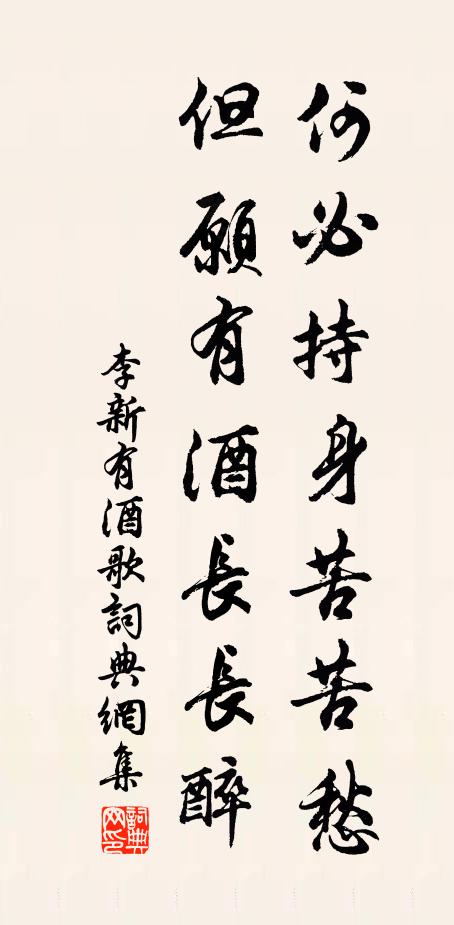 何必持身苦苦愁
但願有酒長長醉
李新有酒歌詞典網集
詞典網印